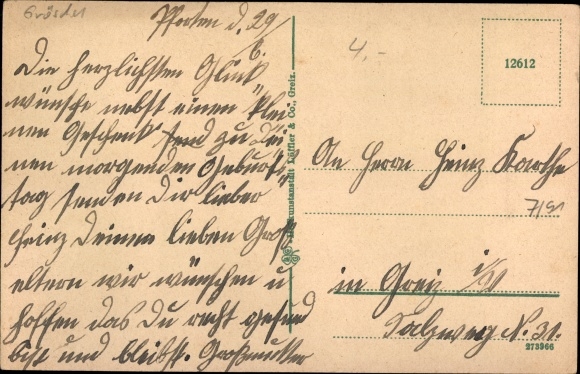 Pforten d. 29/6.
Die herzlichsten Glück
wünsche nebst einen klei
nen Geschenk send zu Dei
nen morgenden Geburts
tag senden Dir lieber
Heinz Deinne lieben Groß
eltern wir wünschen u
hoffen das Du recht gesund
bist und bleibst. Großmutter
Kunstanstalt Löffler & Co., Greiz.
4,-
12612
An Herrn Heinz Karthe
7/91
in Greiz i/V
Salzweg N. 31.
273966